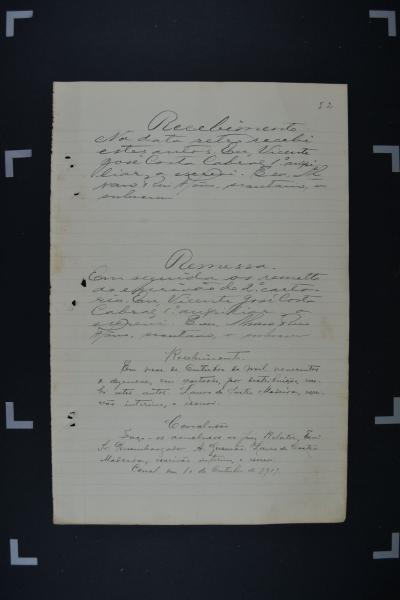 52
Recebimento
Na data retro recebi
estes autos. Eu, Vicente
José Costa Cabral, 1º auxi
liar, o escrevi. E eu,
escrivão, o
subscrevi
Remessa.
Em seguida os remetto
ao escrivão do 2º carto
rio. Eu, Vicente José Costa
Cabral, 1º auxiliar, o
escrevi. E eu,
o subscrevi
Recebimento.
Em dez de Outubro de mil novecentos
e dezenove, em cartorio, por distribuição, 
estes autos. de Castro Madeira, escri
vão interino, o escrevi.
Conclusão
Faço-os conclusos ao Juiz Relator, Exmo
Sr. Desembargador A. de Castro
Madeira, escrivão interino, o escrevi.
em 10 de Outubro de 1919.